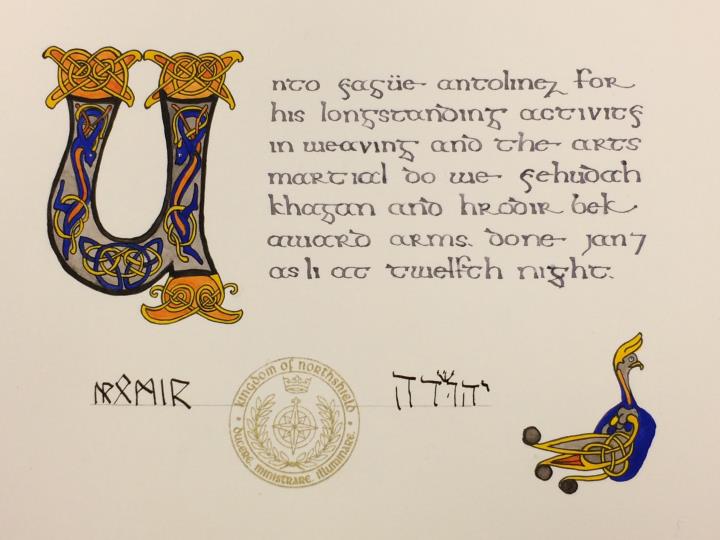 Unto yagüe antolinez for
his longstanding activity
in weaving and the arts
martial do we yehudah
khagan and hrodir bek
award arms. done jan 7
as li at twelfth night.
יהודה
kingdom of northshield
ducere. ministrare. illuminare.